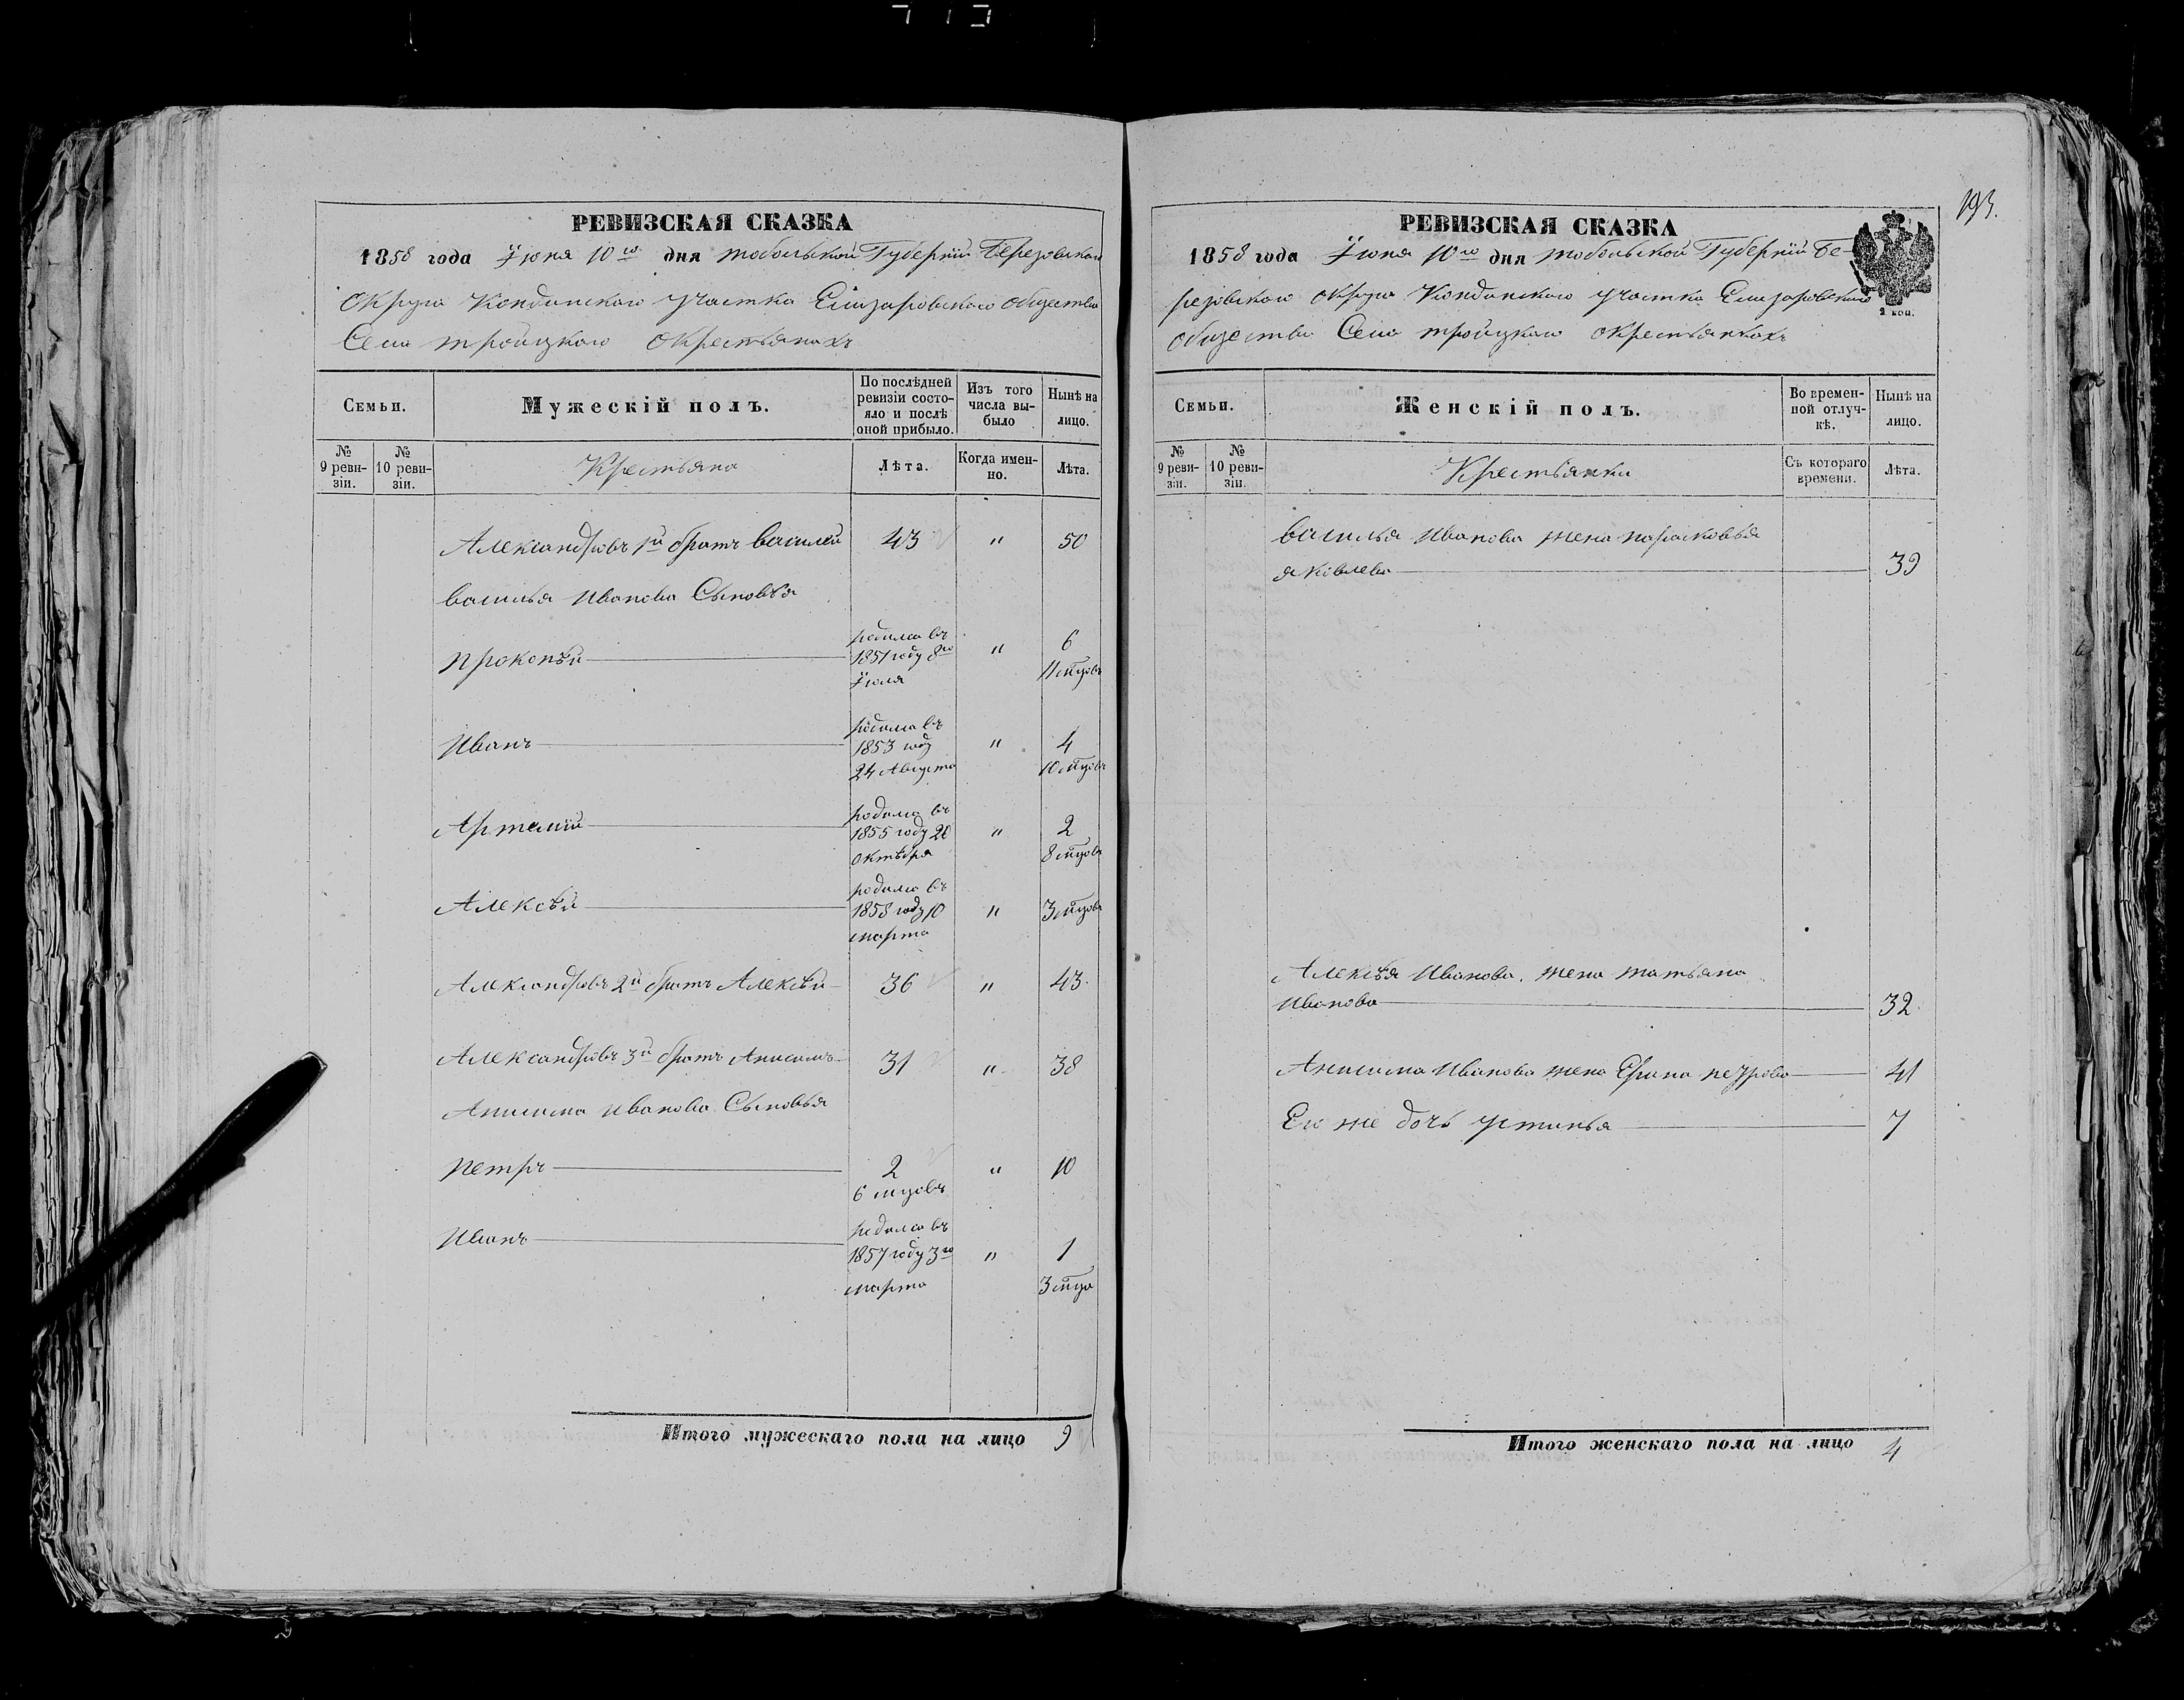 193.
РЕВИЗСКАЯ СКАЗКА
1858 года Іюня 10го дня тобольской Губерніи Березовскаго
Округа Кондинскаго участка Елизаровскаго общества
Села троицкаго окрестьянахъ
Семьи.
Мужескій полъ.
По послѣдней ревизіи состояло и послѣ оной прибыло.
Изъ того числа выбыло
Нынѣ на лицо.
№ 9 ревизіи.
№ 10 ревизіи.
Крестьяна
Лѣта.
Когда именно.
Лѣта.
Александровъ 1й братъ василей 43 " 50
василья Иванова Сыновья
прокопѣй родился въ 1851 году 8го Іюля " 6 11 мцовъ
Иванъ родился въ 1853 году 24 Августа " 4 10 мцовъ
Артемій родился въ 1855 году 20 октября " 2 8 мцовъ
Алексѣй родился въ 1858 году 10 марта " 3 мцовъ
Александровъ 2й братъ Алексѣй 36 " 43
Александровъ 3й братъ Анисимъ 31 " 38
Анисима иванова Сыновья
петръ 2 6 мцовъ " 10
Иванъ родился въ 1857 году 3го марта " 1 3 мца
Итого мужескаго пола на лицо 9
РЕВИЗСКАЯ СКАЗКА
1858 года Іюня 10го дня тобольской Губерніи Бе-
резовскаго округа Кондинскаго участка Елизаровскаго
общества Села троицкаго окрестьянкахъ
2 коп.
Семьи.
Женскій полъ.
Во временной отлучкѣ.
Нынѣ на лицо.
№ 9 ревизіи.
№ 10 ревизіи.
Крестьянки
Съ котораго времени.
Лѣта.
василья Иванова жена парасковья
яковлева 39
Алексѣя Иванова жена татьяна
Иванова 32
Анисима Иванова жена Ірина петрова 41
Ею же дочь устинья 7
Итого женскаго пола на лицо 4